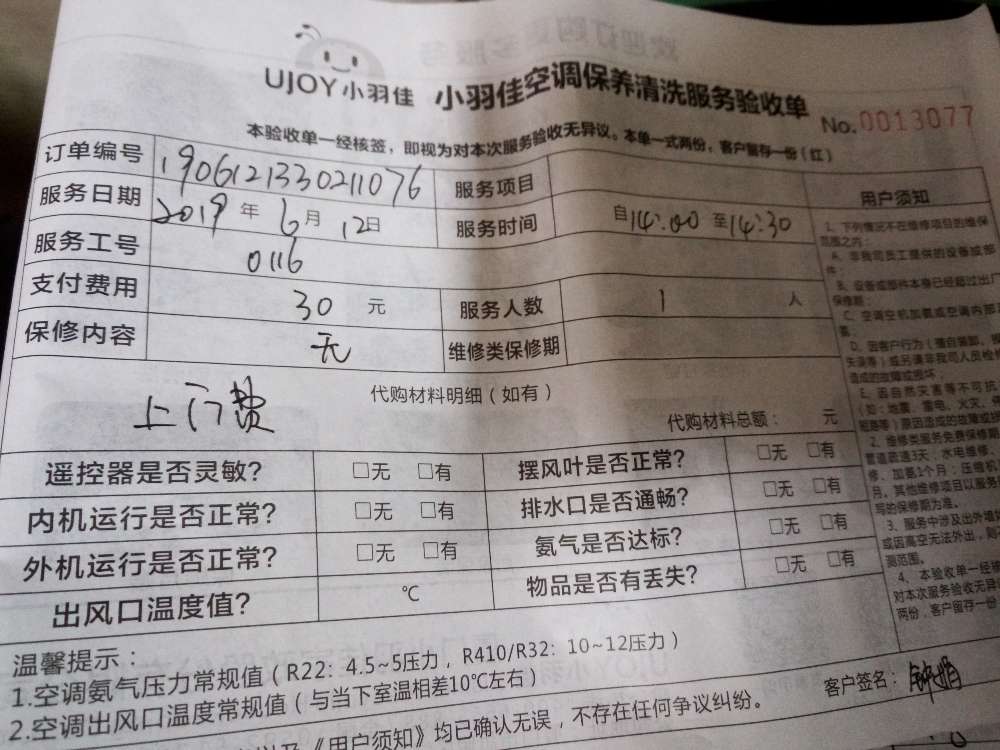 UJOY小羽佳 小羽佳空调保养清洗服务验收单
No.0013077
本验收单一经核签，即视为对本次服务验收无异议。本单一式两份，客户留存一份（红）
订单编号 1906121330211076 服务项目
服务日期 2019 年 6 月 12 日 服务时间 自14:00 至14:30
服务工号 0116
支付费用 30 元 服务人数 1 人
保修内容 无 维修类保修期
代购材料明细（如有）
上门费
代购材料总额： 元
遥控器是否灵敏? □无 □有 摆风叶是否正常? □无 □有
内机运行是否正常? □无 □有 排水口是否通畅? □无 □有
外机运行是否正常? □无 □有 氨气是否达标? □无 □有
出风口温度值? ℃ 物品是否有丢失? □无 □有
温馨提示：
1.空调氨气压力常规值（R22：4.5~5压力，R410/R32：10~12压力）
2.空调出风口温度常规值（与当下室温相差10℃左右）
《用户须知》均已确认无误，不存在任何争议纠纷。
客户签名：钟娟
用户须知
1、下列情况不在维修项目的维保
范围之内：
A、非我司员工提供的设备或部
件；
B、设备或部件本身已经超过出厂
保修期；
C、空调空机加氨或空调内部
D、因客户行为（擅自装卸、
失误等）或另请非我司人员检
造成的故障或损坏；
E、因自然灾害等不可抗
（如：地震、雷电、火灾、
短路等）原因造成的故障或
2、维修类服务免费保修期
管道疏通3天；水电维修、
修、加氨1个月；压缩机
月。其他维修项目以服务
写的保修期为准。
3、服务中涉及出外墙
或因高空无法外出，则
测范围。
4、本验收单一经核
对本次服务验收无异
两份，客户留存一份